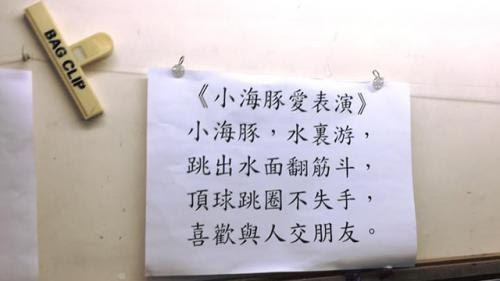 BAG CLIP
《小海豚愛表演》
小海豚，水裏游，
跳出水面翻筋斗，
頂球跳圈不失手，
喜歡與人交朋友。